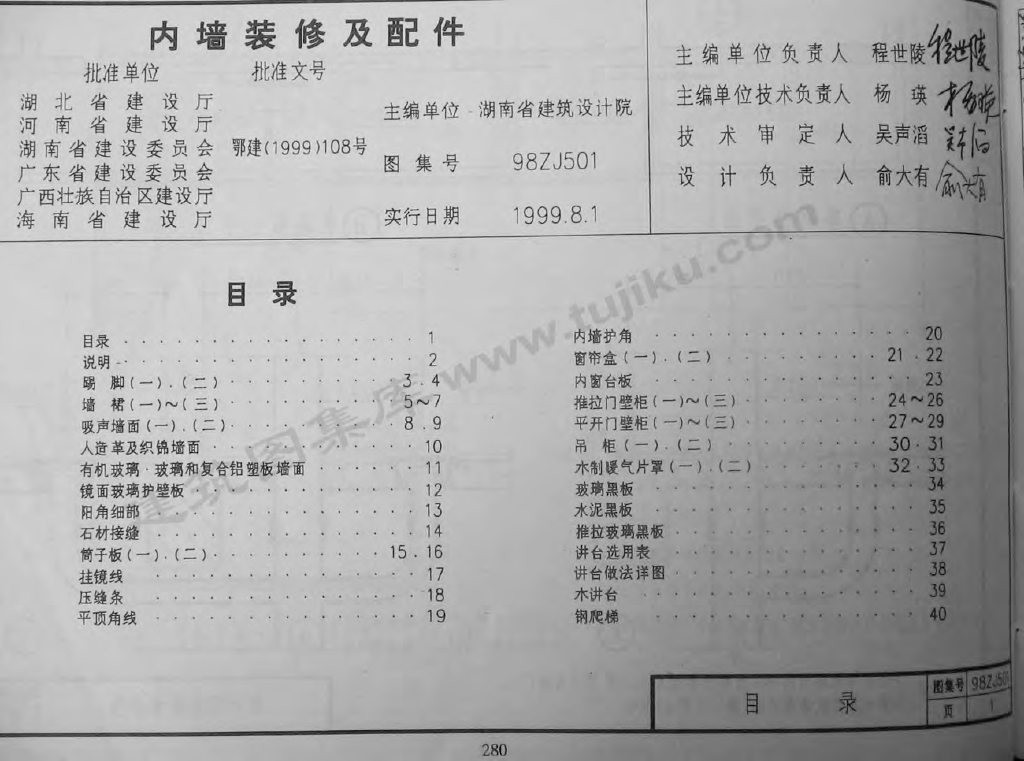 内墙装修及配件
批准单位 批准文号
湖北省建设厅
河南省建设厅
湖南省建设委员会 鄂建(1999)108号
广东省建设委员会
广西壮族自治区建设厅
海南省建设厅
主编单位 湖南省建筑设计院
图集号 98ZJ501
实行日期 1999.8.1
主编单位负责人 程世陵 程世陵
主编单位技术负责人 杨瑛
技术审定人 吴声滔
设计负责人 俞大有 俞大有
目录
目录 1
说明 2
踢脚(一).(二) 3.4
墙裙(一)~(三) 5~7
吸声墙面(一).(二) 8.9
人造革及织锦墙面 10
有机玻璃·玻璃和复合铝塑板墙面 11
镜面玻璃护壁板 12
阳角细部 13
石材接缝 14
筒子板(一).(二) 15.16
挂镜线 17
压缝条 18
平顶角线 19
内墙护角 20
窗帘盒(一).(二) 21.22
内窗台板 23
推拉门壁柜(一)~(三) 24~26
平开门壁柜(一)~(三) 27~29
吊柜(一).(二) 30.31
木制暖气片罩(一).(二) 32.33
玻璃黑板 34
水泥黑板 35
推拉玻璃黑板 36
讲台选用表 37
讲台做法详图 38
木讲台 39
钢爬梯 40
建筑图集库 www.tujiku.com
目录 图集号 98ZJ501
页 1
280